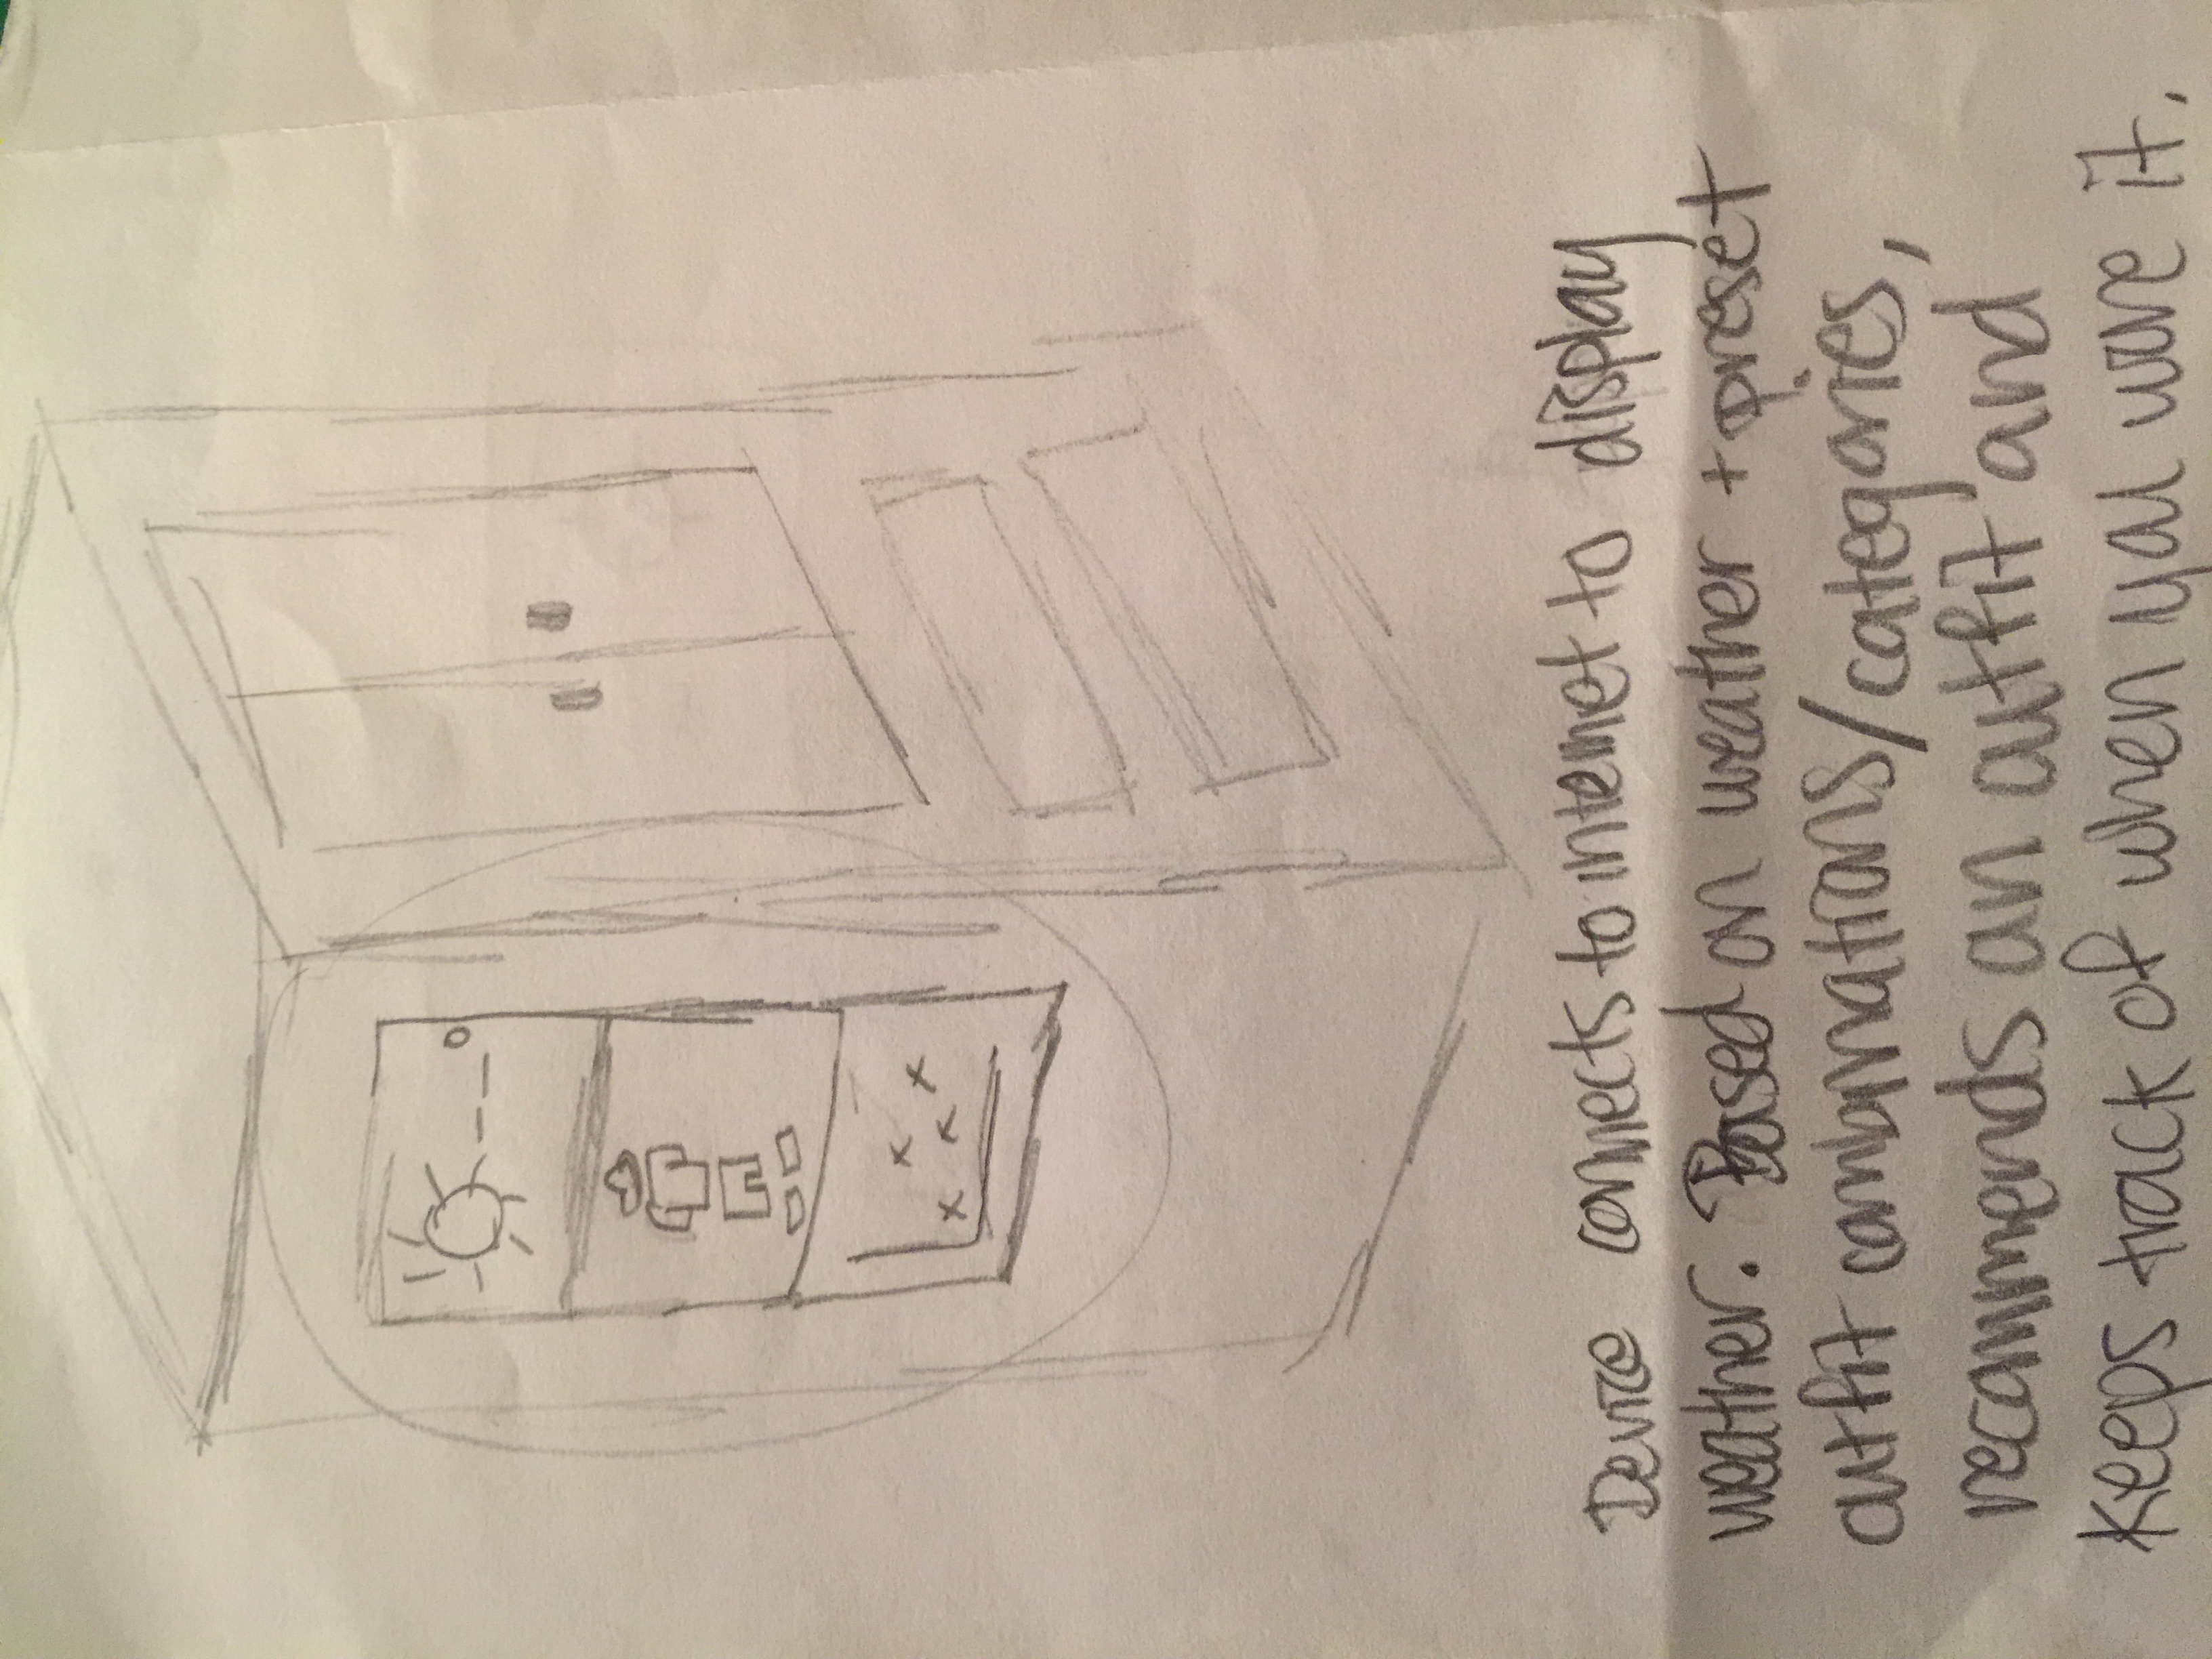 Device connects to internet to display
weather. Based on weather + preset
outfit combinations/categories,
recommends an outfit and
keeps track of when you wore it.